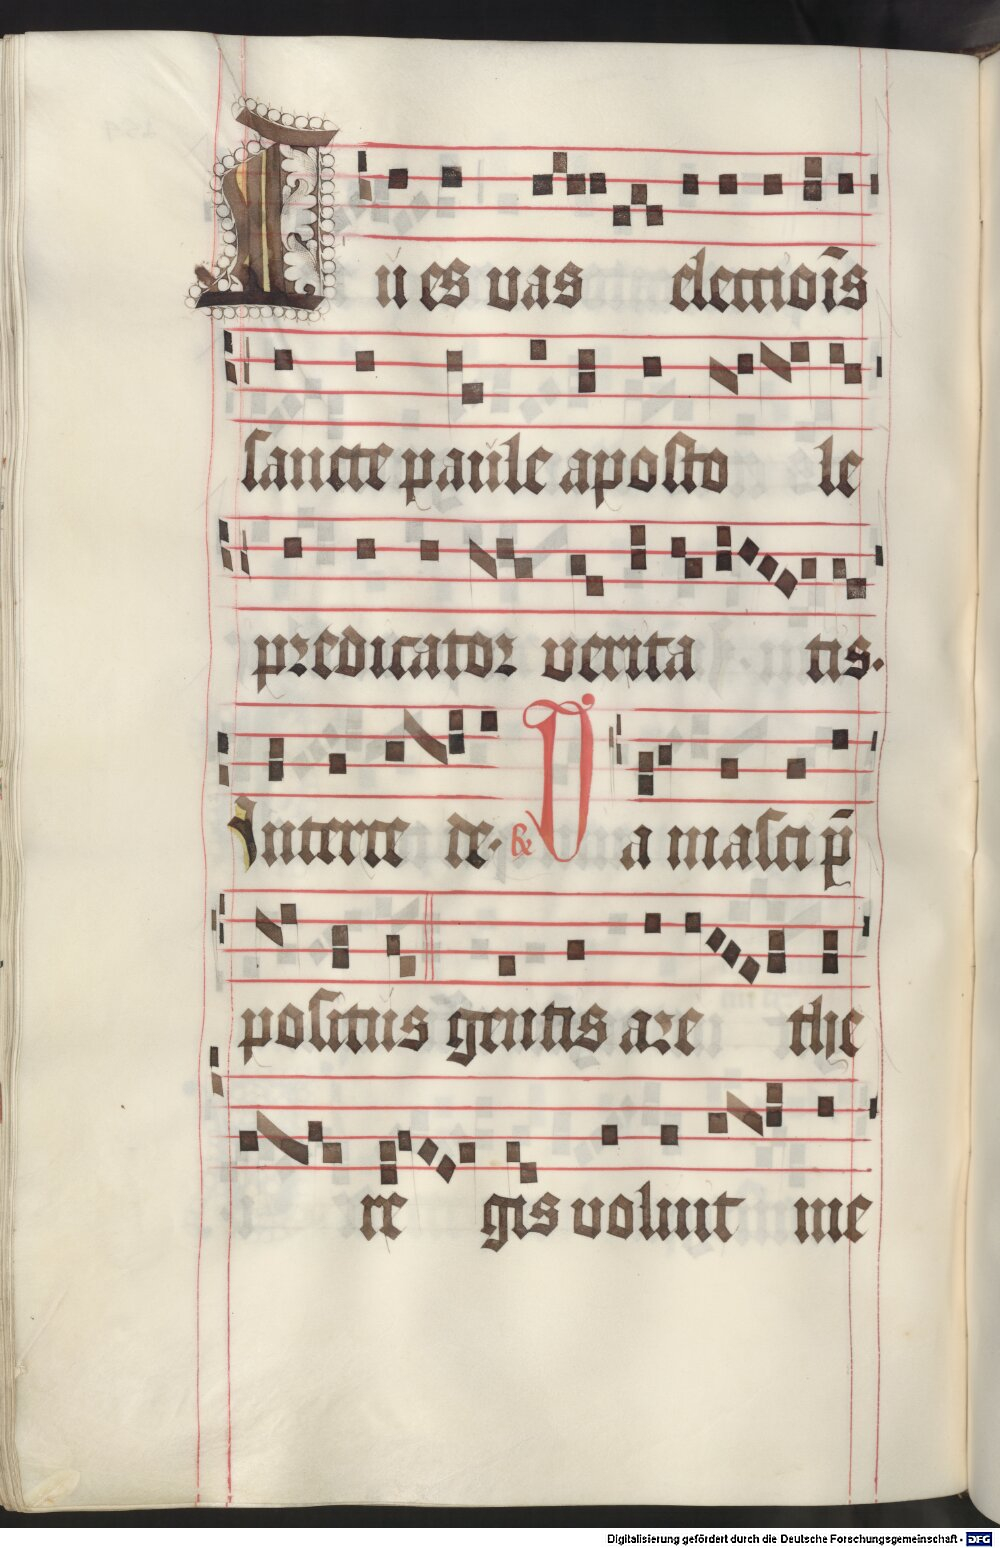 Tu es vas electiois̄
sancte paule aposto le
predicator verita tis.
Interce de. & V a mascip̄
positus gentis are the
re gis voluit me
Digitalisierung gefördert durch die Deutsche Forschungsgemeinschaft - DFG